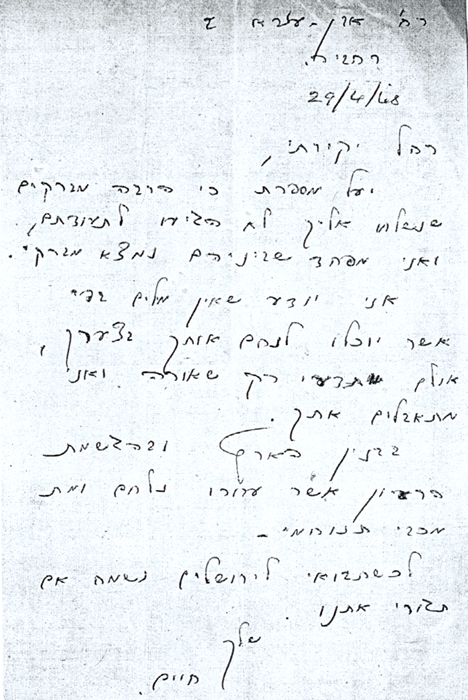 רח' אבן-עזרא
רחביה.
29/4/48
רחל יקירתי,
יעל מספרת כי הרבה מברקים
שנשלחו אליך לא הגיעו לתעודתם,
ואני מפחד שביניהם נמצא מברקי.
אני יודע שאין מלים בפי
אשר יוכלו לנחם אותך בצערך,
אולם שתדעי רק שאורה ואני
מתאבלים אתך.
בבנין הארץ ובהגשמת
הרעיון אשר עבורו נלחם ומת
מכבי תנוחמי -
לכשתבואי לירושלים נשמח אם
תגורי אתנו.
שלך
חיים.